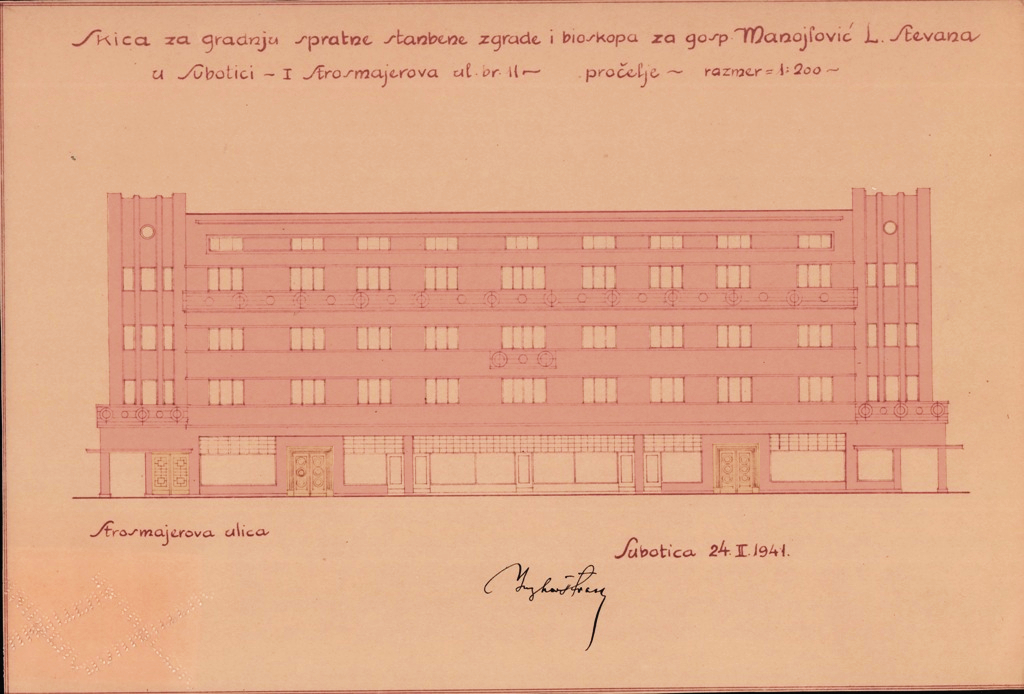 Skica za gradnju spratne stanbene zgrade i bioskopa za gosp. Manojlović L. Stevana
u Subotici – I Štrosmajerova ul. br. 11 – pročelje ~ razmer = 1:200 ~
Štrosmajerova ulica
Subotica 24.II.1941.